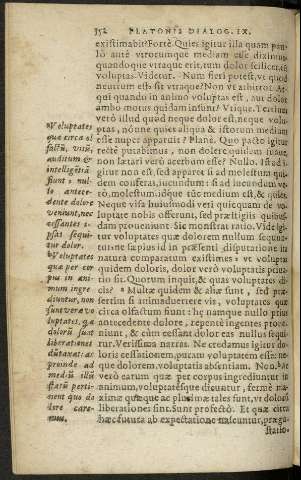 352 PLATONIS DIALOG. IX.
existimabit? Fortè. Quies igitur illa quam pau-
lò antè vtrorumque medium esse diximus,
quandoque vtraque erit, tum dolor scilicet, tū
voluptas. Videtur. Num fieri potest, vt quod
neutrum est, sit vtraque? Non vt arbitror. At
qui quando in animo voluptas est, aut dolor
ambo motus quidam insunt? Vtique. Tertium
verò illud quod neque dolor est, neque volu-
ptas, nónne quies aliqua & istorum medium
esse nuper apparuit? Planè. Quo pacto igitur
rectè putabimus, non dolere quidem suaue,
non lætari verò acerbum esse? Nullo. Istud i-
gitur non est, sed apparet si ad molestum qui-
dem conferas, iucundum: si ad iucundum ve-
rò, molestum, idque tūc medium est, & quies.
Neque visa huiusmodi veri quicquam de vo-
luptate nobis offerunt, sed præstigiis quibus-
dam proueniunt. Sic monstrat ratio. Vide igi-
tur voluptates quæ dolorem nullum sequun-
tur: ne sæpius id in præsenti disputatione ita
natura comparatum existimes: vt voluptas
quidem doloris, dolor verò voluptatis priua-
tio sit. Quorsum inquit, & quas voluptates di-
cis? Multæ quidem & aliæ sunt, sed præ-
sertim si animaduertere vis, voluptates quæ
circa olfactum sunt: hę namque nullo prius
antecedente dolore, repentè ingentes proue-
niunt, & cùm cessant dolor eas nullus sequi-
tur. Verissima narras. Ne credamus igitur do-
loris cessationem, puram voluptatem esse: ne-
que dolorem, voluptatis absentiam. Non. At
verò earum quæ per corpus ingrediuntur in
animum, voluptatésque dicuntur, fermè ma-
ximæ quæque ac plurimæ tales sunt, vt doloris
liberationes sint. Sunt profectò. Et quæ circa
hæc futura ab expectatione nascuntur, præge-
statio-
Voluptates
quæ circa ol
factū, visū,
auditum &
intelligētiā
fiunt: nul-
lo antece-
dente dolore
veniunt, nec
cessantes i-
psas sequi-
tur dolor.
Voluptates
quæ per cor
pus in ani-
mum ingre
diuntur, non
sunt veræ vo
luptates, q̄a
dolorū sunt
liberationes
dūtaxat: ac
proinde ad
mediū illū
statū perti-
nent quo do
lore care-
mus.